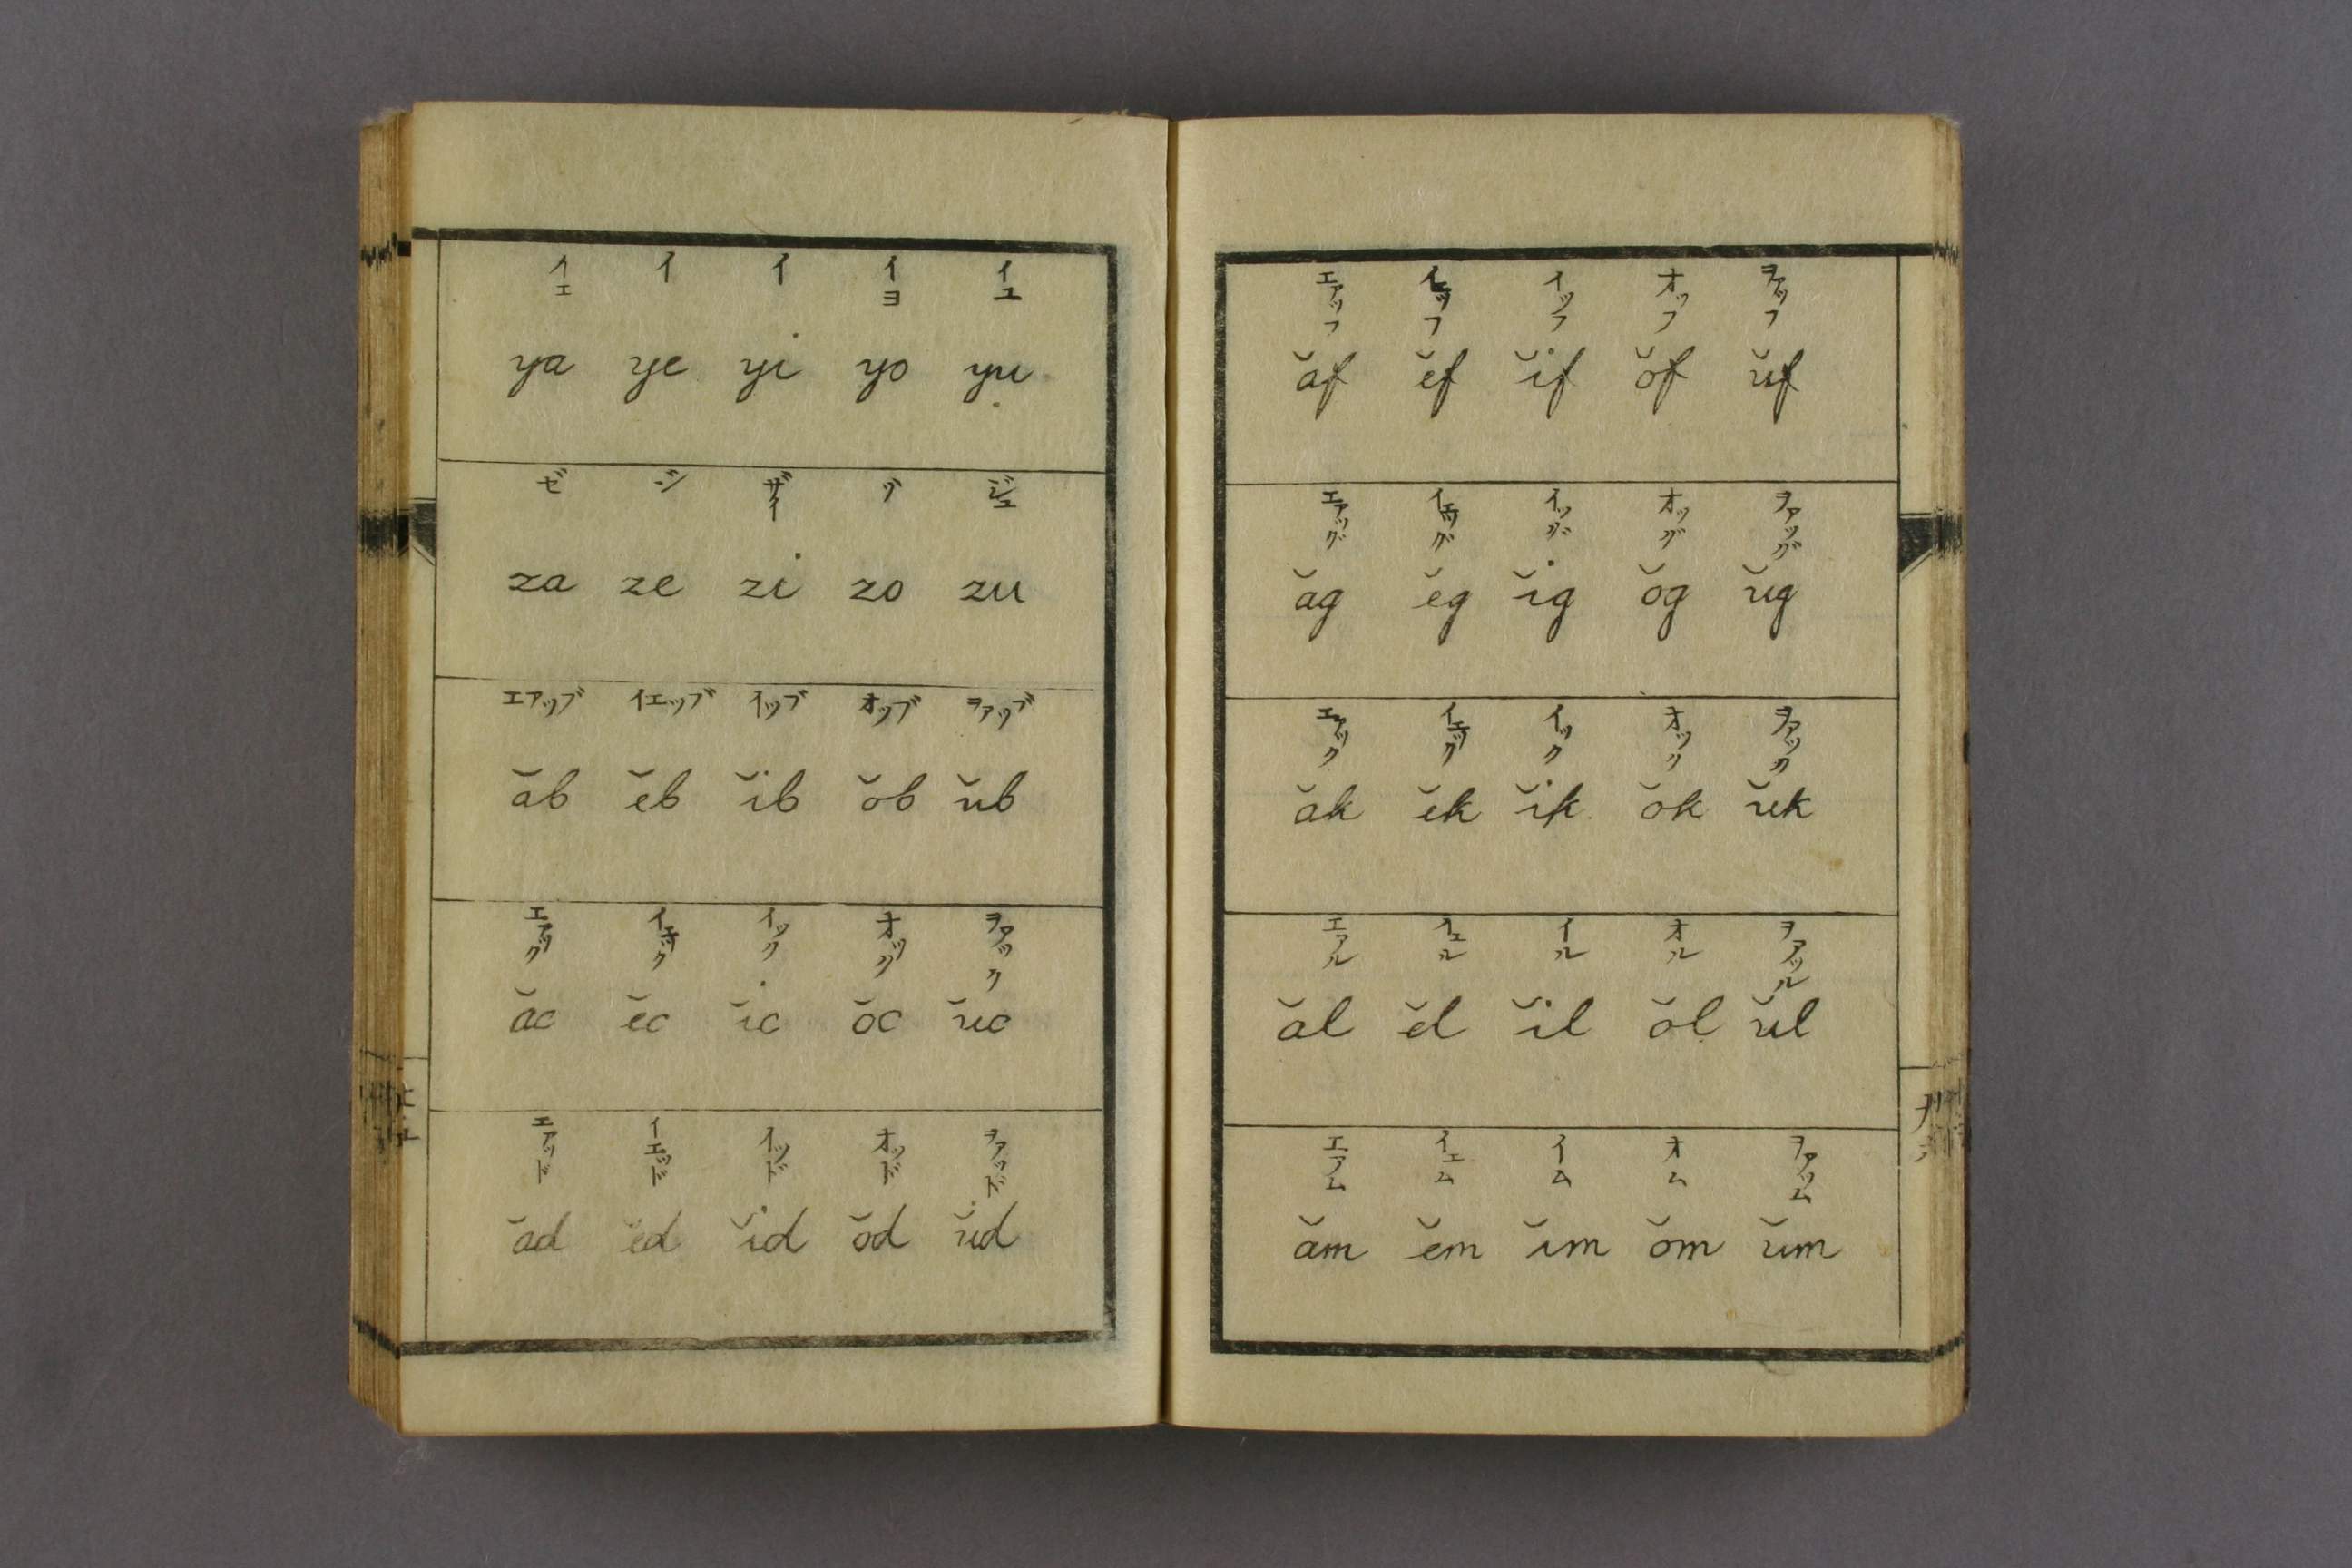 イェ イ イ イヨ イユ
ya ye yi yo yu
ゼ ジ ザイ ゾ ジユ
za ze zi zo zu
エアッブ イエッブ イッブ オッブ ヲアッブ
ăb ĕb ĭb ŏb ŭb
エアック イエック イック オック ヲアック
ăc ĕc ĭc ŏc ŭc
エアッド イエッド イッド オッド ヲアッド
ăd ĕd ĭd ŏd ŭd
エアッフ イエッフ イッフ オッフ ヲアッフ
ăf ĕf ĭf ŏf ŭf
エアッグ イエッグ イッグ オッグ ヲアッグ
ăg ĕg ĭg ŏg ŭg
エアック イエック イック オック ヲアック
ăk ĕk ĭk ŏk ŭk
エアル イエル イル オル ヲアッル
ăl ĕl ĭl ŏl ŭl
エアム イエム イム オム ヲアッム
ăm ĕm ĭm ŏm ŭm